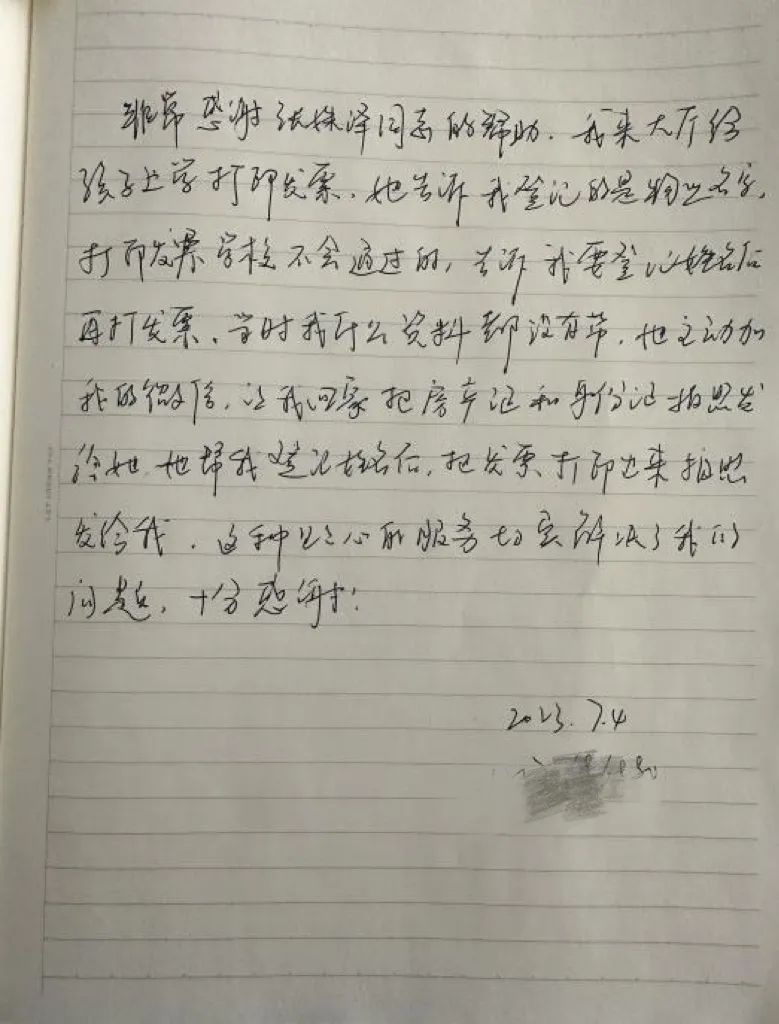 非常感谢张姝泽同志的帮助。我来大厅给
孩子上学打印发票、她告诉我登记的是物业名字,
打印发票学校不会通过的,告诉我要登记姓名后
再打发票、当时我什么资料都没有带,她主动加
我的微信,让我回家把房产证和身份证拍照发
给她 她帮我登记姓名后,把发票打印出来拍照
发给我。这种贴心的服务切实解决了我们
问题,十分感谢!
2023.7.4